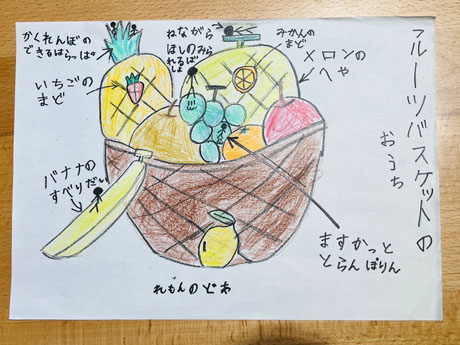 フルーツバスケットの
おうち
かくれんぼの
できるはらっぱ
いちごの
まど
ねながら
ほしのみら
れるばしょ
みかんの
まど
メロンの
へや
バナナの
すべりだい
ますかっと
とらんぽりん
れもんのどあ